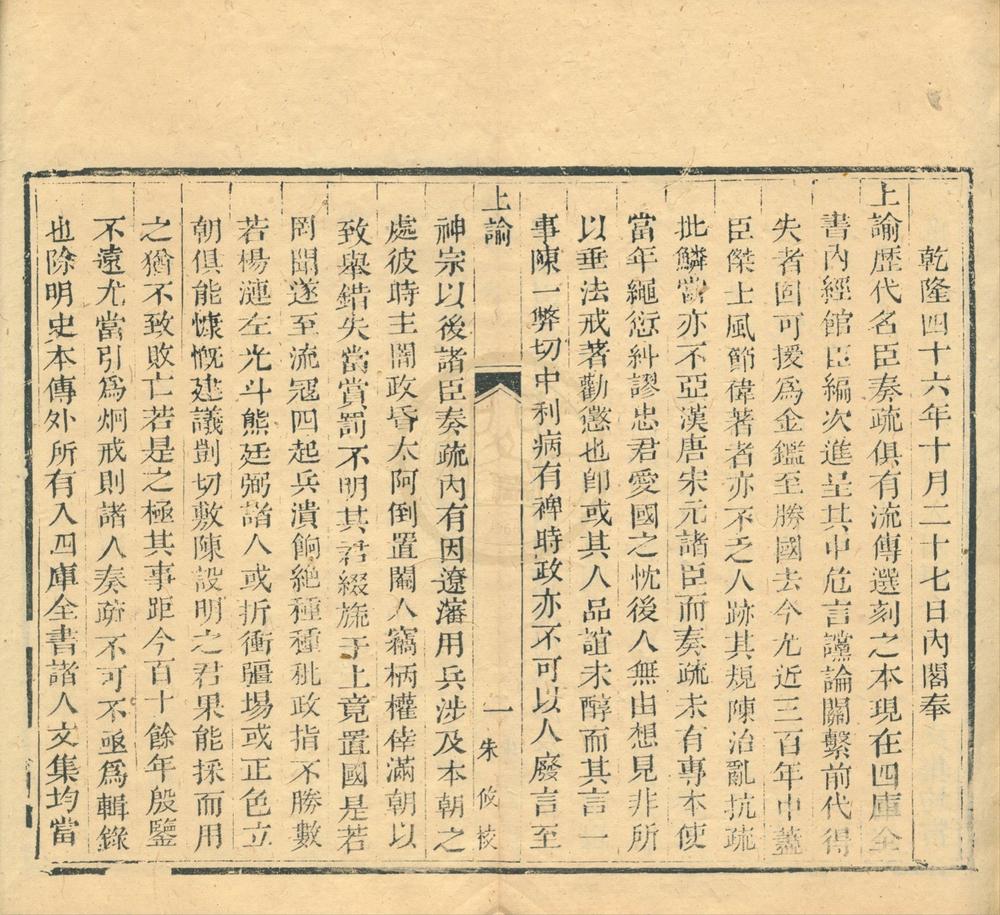 乾隆四十六年十月二十七日內閣奉
上諭歷代名臣奏疏俱有流傳選刻之本現在四庫全
書內經館臣編次進呈其中危言讜論關繫前代得
失者固可援爲金鑑至勝國去今尤近三百年中蓋
臣傑士風節偉著者亦不乏人跡其規陳治亂抗疏
批鱗當亦不亞漢唐宋元諸臣而奏疏未有專本使
當年繩愆糾謬忠君愛國之忱後人無由想見非所
以垂法戒著勸懲也卽或其人品誼未醇而其言一
事陳一弊切中利病有裨時政亦不可以人廢言至
上諭
一
朱攸校
神宗以後諸臣奏疏內有因遼瀋用兵涉及本朝之
處彼時主闇政昏太阿倒置閹人竊柄權倖滿朝以
致舉錯失當賞罰不明其君綴旒于上竟置國是若
罔聞遂至流寇四起兵潰餉絕種種秕政指不勝數
若楊漣左光斗熊廷弼諸人或折衝疆場或正色立
朝俱能慷慨建議剴切敷陳設明之君果能採而用
之猶不致敗亡若是之極其事距今百十餘年殷鑒
不遠尤當引爲炯戒則諸人奏疏不可不亟爲輯錄
也除明史本傳外所有入四庫全書諸人文集均當